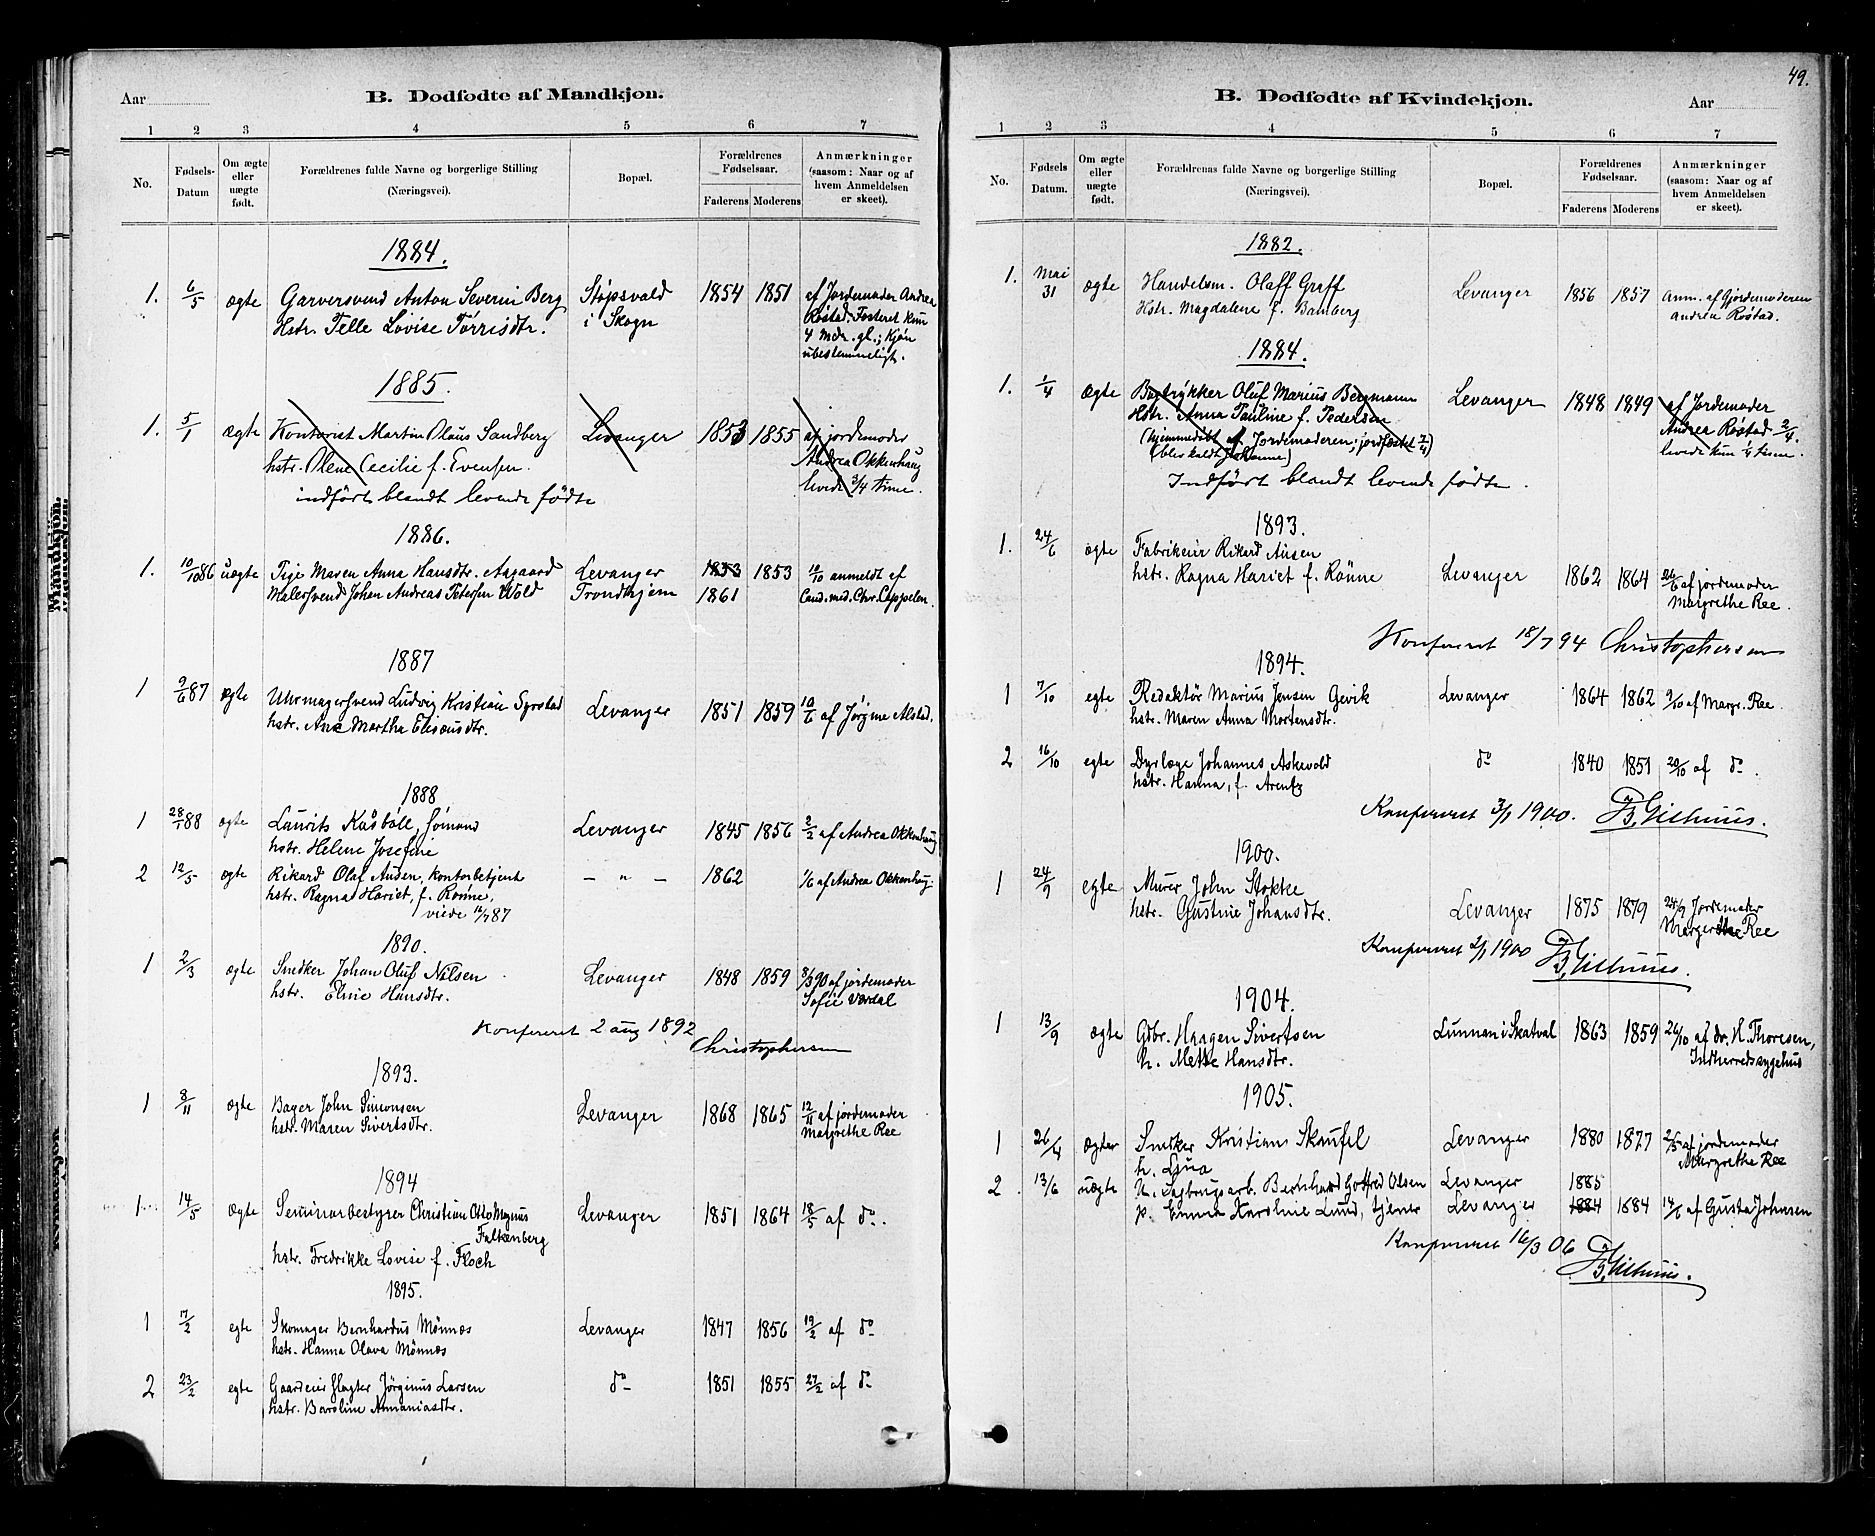 Aar
B. Dødfødte af Mandkjøn.
1 2 3 4 5 6 7
No.
Fødsels-
Datum
Om ægte
eller
uægte
født.
Forældrenes fulde Navne og borgerlige Stilling
(Næringsvei).
Bopæl.
Forældrenes
Fødselsaar.
Faderens Moderens
Anmærkninger
(saasom: Naar og af
hvem Anmeldelsen
er skeet).
1884.
1. 6/5 ægte Garversvend Anton Severin Berg Støpsvald 1854 1851 af Jordemoder Andrea
Hstr. Telle Lovise Törrisdtr. i Skogn Røstad. Fosteret kun
4 Mdr. gl.; Kjøn
ubestemmeligt.
1885.
1. 5/1 ægte Kontorist Martin Olaus Sandberg Levanger 1853 1855 af jordemoder
hstr. Olene Cecilie f. Evensen. Andrea Okkenhaug
levede 3/4 time.
indført blandt levende fødte
1886.
1. 10/10 86 uægte Pige Maren Anna Hansdtr. Aagaard Levanger 1853 1853 10/10 anmeldt af
Malersvend Johan Andreas Petersen Wold Trondhjem 1861 Cand. med. Chr. Cappelen.
1887
1 9/6 87 ægte Uhrmagersvend Ludvig Kristian Syrstad Levanger 1851 1859 10/6 af Jørgine Alstad.
hstr. Ane Martha Eliseusdtr.
1888
1 28/1 88 ægte Laurits Kåsbøll, Sømand Levanger 1845 1856 2/2 af Andrea Okkenhaug
hstr. Helene Josefine
2 12/5 ægte Rikard Olaf Ausen, kontorbetjent — „ — 1862 1/6 af Andrea Okkenhaug.
hstr. Ragna Hariet, f. Rønne,
viede 12/7 87
1890.
1 2/3 ægte Snedker Johan Oluf Nilsen Levanger 1848 1859 8/3 90 af jordemoder
hstr. Eline Hansdtr. Sofie Værdal
Konfereret 2 aug 1892
Christophersen
1893.
1 8/11 ægte Bager John Simonsen Levanger 1868 1865 12/11 af jordemoder
hstr. Maren Sivertsdtr. Margrethe Ree
1894
1. 14/5 ægte Seminarbestyrer Christian Otto Magnus Levanger 1851 1864 18/5 af do.
Falkenberg
hstr. Fredrikke Lovise f. Floch
1895.
1 17/2 egte Skomager Bernhardus Mönnæs Levanger 1847 1856 19/2 af do
hstr. Hanna Olava Mönnæs
2 23/2 egte Gaardeier Slagter Jørginus Larsen do 1851 1855 27/2 af do
hstr. Baroline Annaniasdtr.
49.
B. Dødfødte af Kvindekjøn.
Aar
1 2 3 4 5 6 7
No.
Fødsels
Datum.
Om ægte
eller
uægte
født.
Forældrenas fulde Navne og borgerlige Stilling
(Næringsvei).
Bopæl.
Forældrenes
Fødselsaar.
Faderens Moderens
Anmærkninger
(saasom: Naar og af
hvem Anmeldelsen
er skeet).
1882.
1. Mai 31 ægte Handelsm. Olaff Graff Levanger 1856 1857 Anm. af Gjordemoderen
Hstr. Magdalene f. Bamberg Andrea Røstad.
1884.
1. 1/4 Ægte Bogtrykker Oluf Marius Bergmann Levanger 1848 1849 af Jordemoder
Hstr. Anna Pauline f. Pedersen Andrea Røstad 2/4.
(hjemmedøbt af Jordemoderen; jordfæstet 2/4) levede kun 1/4 time.
(blev kaldt Johanne)
Indført blandt levende fødte.
1893.
1. 24/6 ægte Fabrikeier Rikard Ausen
hstr. Ragna Hariet f. Rønne Levanger 1862 1864 26/6 af jordemoder
Margrethe Ree.
Konfereret 18/7 94 Christophersen
1894.
1 7/10 egte Redaktør Marius Jensen Gevik Levanger 1864 1862 9/10 af Margr. Ree.
hstr. Maren Anna Mortensdtr.
2 16/10 egte Dyrlæge Johannes Askevold do 1840 1851 20/10 af do.
hstr. Hanna, f. Arentz
Konfereret 3/1 1900.
1900.
1 24/9 egte Murer John Stokke
hstr. Gustine Johansdtr. Levanger 1875 1879 24/9 Jordemoder
Margrethe Ree
Konfereret 2/1 1900
1904.
1 13/9 ægte Gdbr. Haagen Sivertsen Lunnan i Skatval 1863 1859 26/10 af dr. H. Thoresen,
h. Mette Hansdtr. Indherredsygehus
1905.
1 26/4 ægte Snekker Kristian Skaufel Levanger 1880 1877 2/5 af jordemoder
h. Margrethe Ree
2. 13/6 uægte U. Sagbrugsarb. Bernhard Gotfred Olsen Levanger 1885
p. Emma Karoline Lund, tjener Levanger 1884 1884 14/6 af Gusta Johnsen
Konfereret 16/3 06
Mandkjøn.
Kvindekjøn